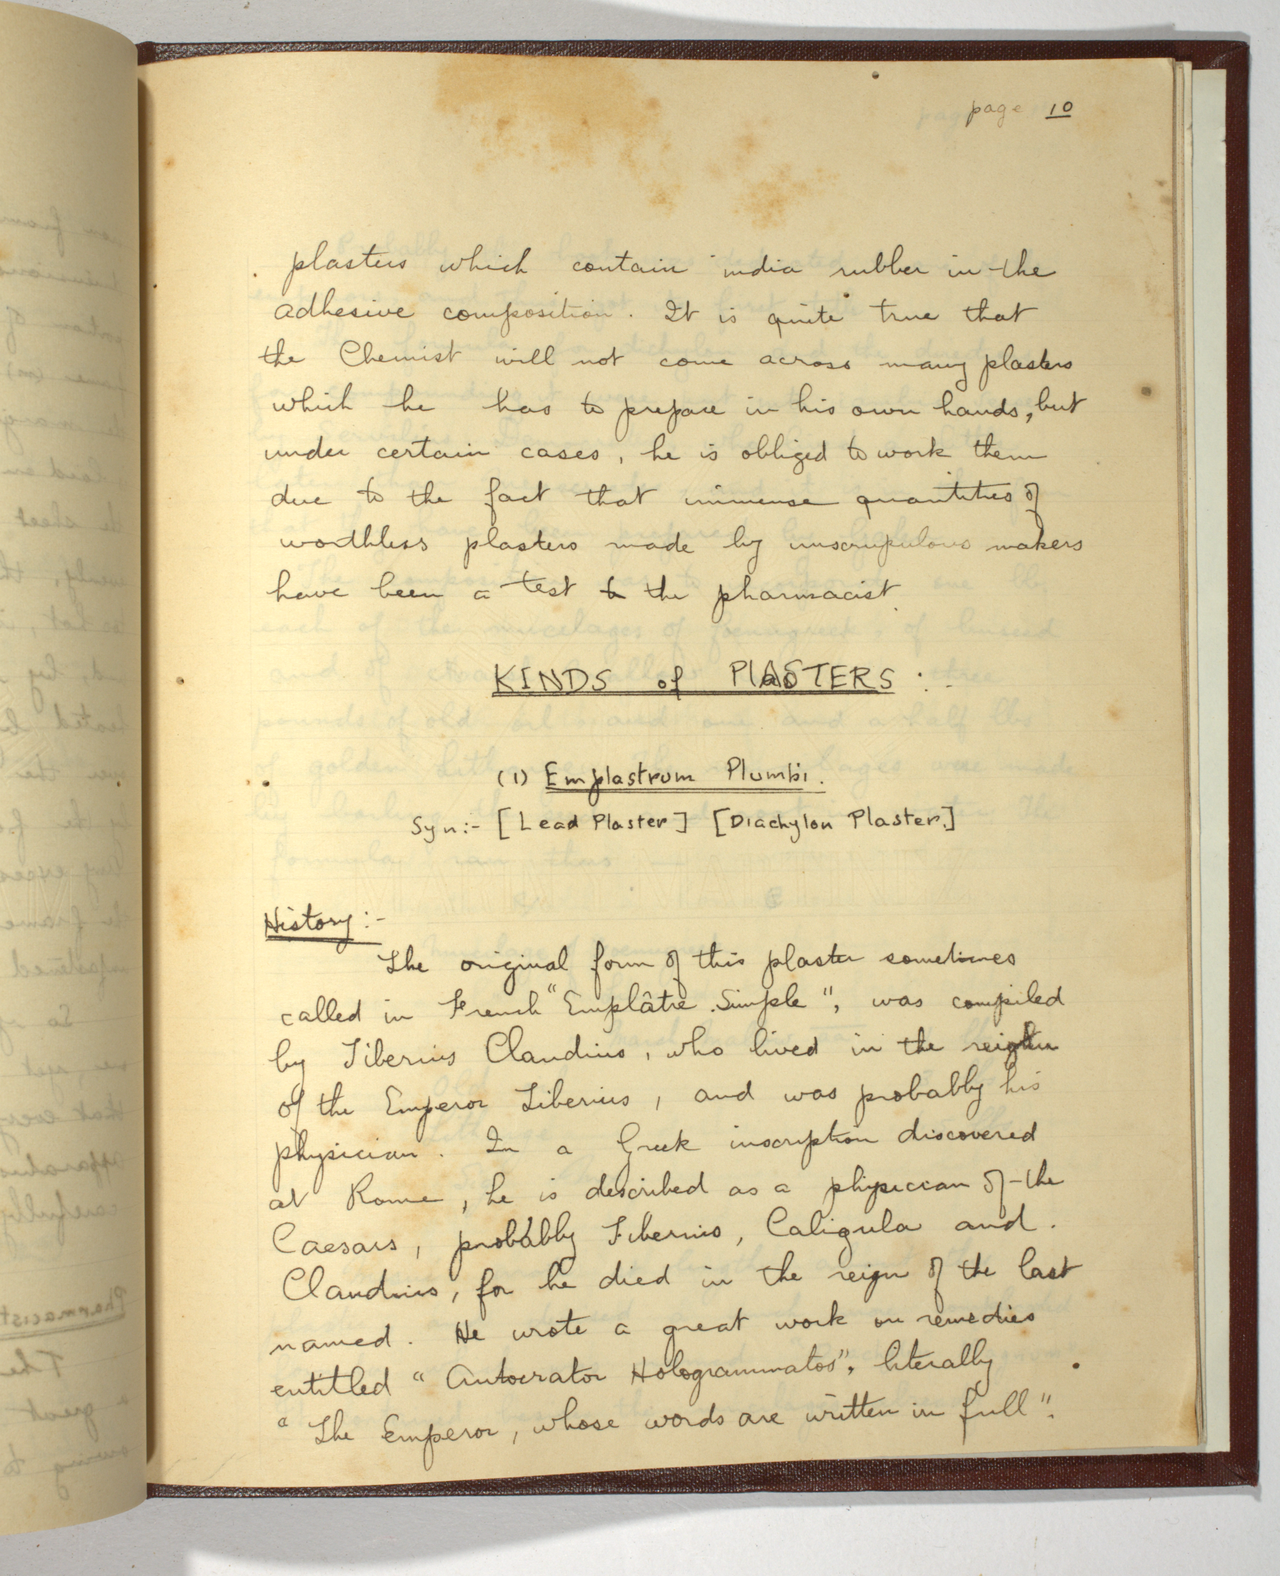 page 10
plasters which contain india rubber in the
adhesive composition. It is quite true that
the Chemist will not come across many plasters
which he has to prepare in his own hands, but
under certain cases, he is obliged to work them
due to the fact that immense quantities of
worthless plasters made by unscrupulous makers
have been a test to the pharmacist.
KINDS of PLASTERS :-
(1) Emplastrum Plumbi.
Syn:- [Lead Plaster] [Diachylon Plaster.]
History:-
The original form of this plaster sometimes
called in French "Emplâtre Simple", was compiled
by Tiberius Claudius, who lived in the
of the Emperor Tiberius, and was probably his
physician. In a Greek inscription discovered
at Rome, he is described as a physician of the
Caesars, probably Tiberius, Caligula and.
Claudius, for he died in the reign of the last
named. He wrote a great work on remedies
entitled "Autocrator Hologrammatos", literally
"The Emperor, whose words are written in full".